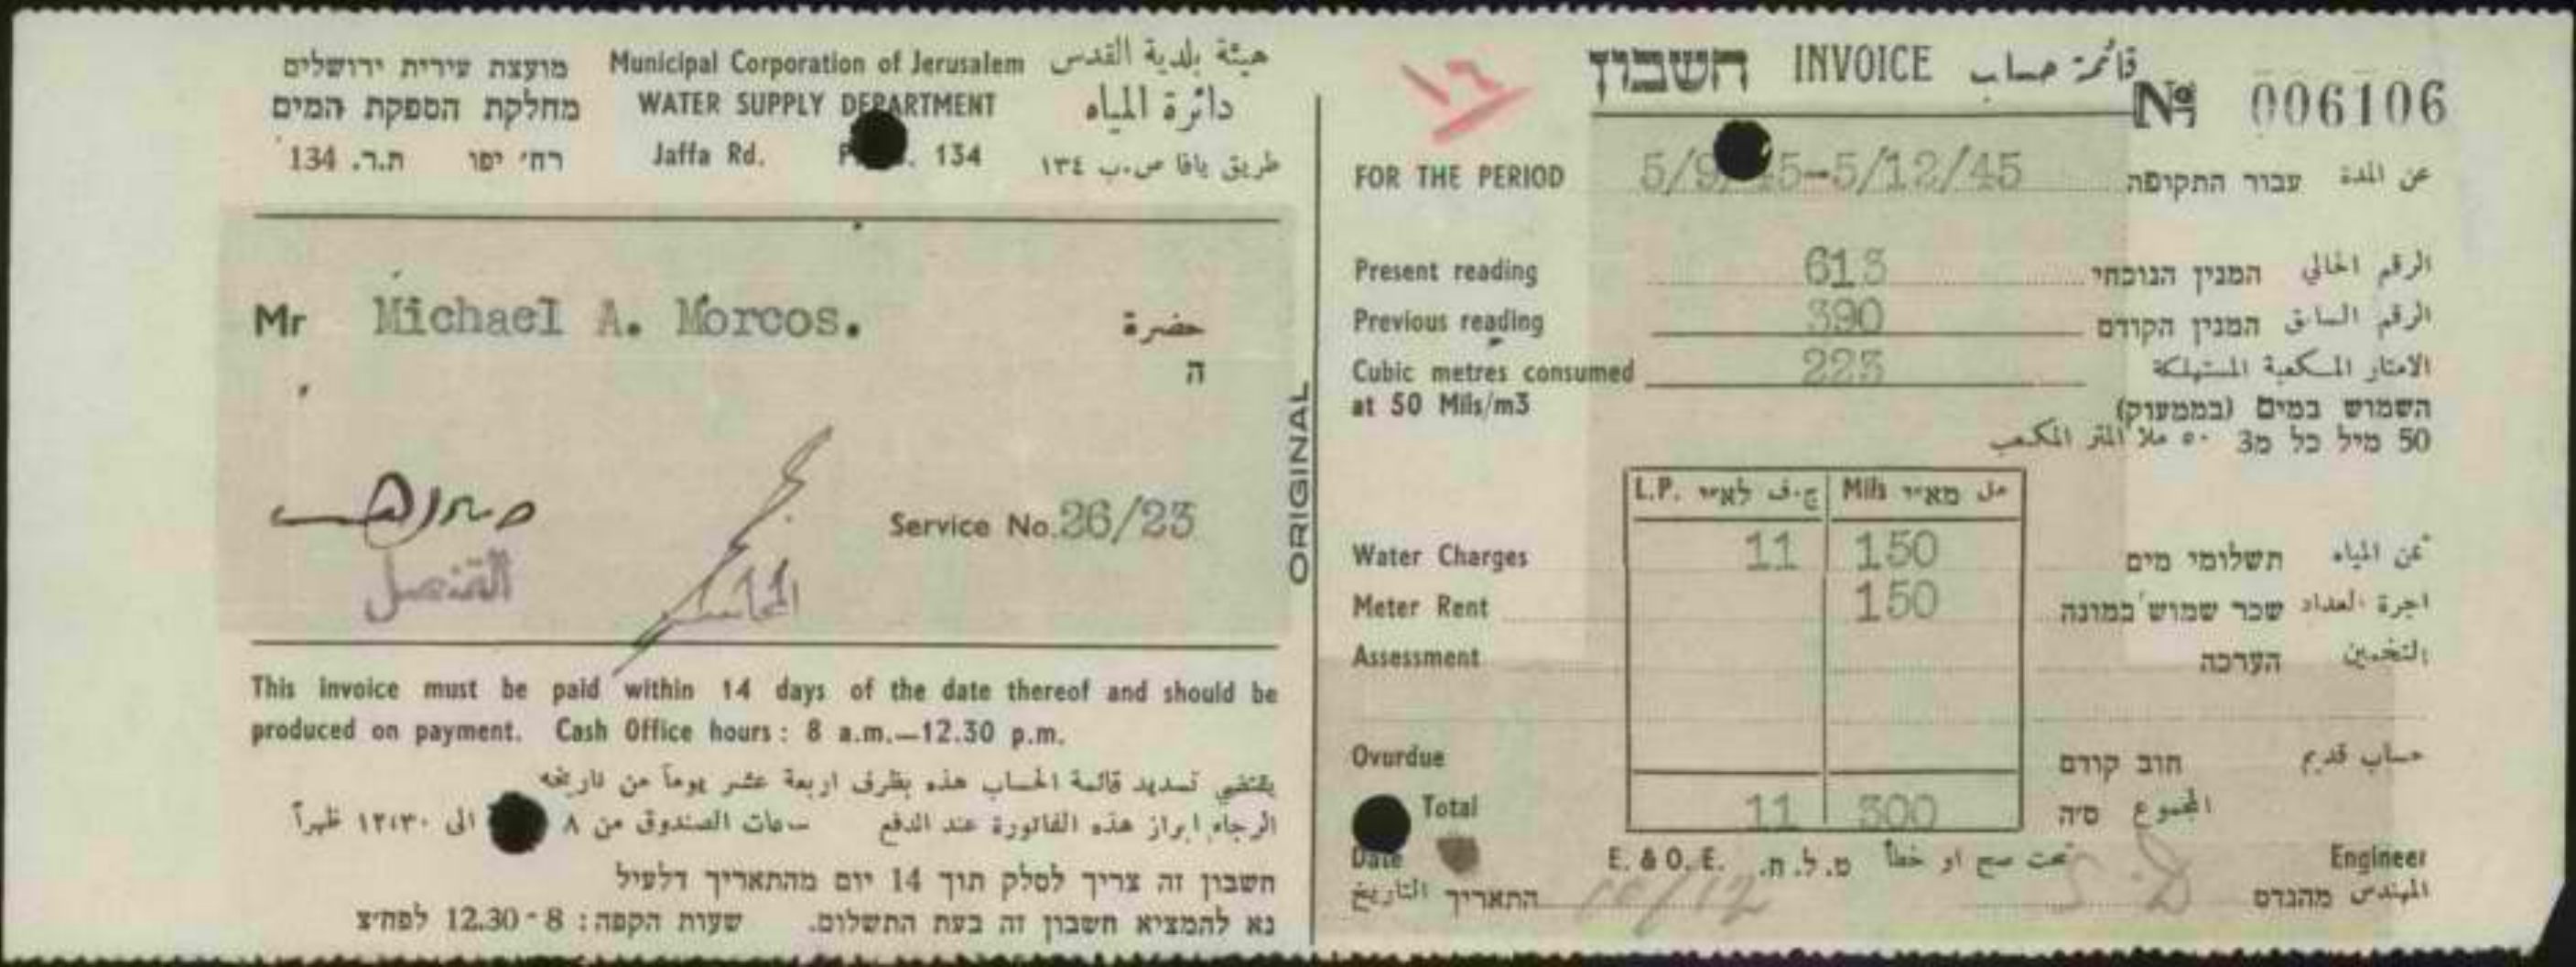 מועצת עירית ירושלים
מחלקת הספקת המים
רח׳ יפו ת.ד. 134
Municipal Corporation of Jerusalem
WATER SUPPLY DEPARTMENT
Jaffa Rd. 134
هيئة بلدية القدس
دائرة المياه
طريق يافا ص.ب ١٣٤
Mr Michael A. Morcos. حضرة
ה
القنصل
Service No. 26/23
This invoice must be paid within 14 days of the date thereof and should be
produced on payment. Cash Office hours: 8 a.m.—12.30 p.m.
يقتضي تسديد قائمة الحساب هذه بظرف اربعة عشر يوماً من تاريخه
الرجاء ابراز هذه الفاتورة عند الدفع ساعات الصندوق من ٨ الى ١٢،٣٠ ظهراً
חשבון זה צריך לסלק תוך 14 יום מהתאריך דלעיל
נא להמציא חשבון זה בעת התשלום. שעות הקפה: 8-12.30 לפה״צ
ORIGINAL
חשבון INVOICE قائمة حساب
№ 006106
FOR THE PERIOD 5/9/45-5/12/45 עבור התקופה عن المدة
Present reading 613 המנין הנוכחי الرقم الحالي
Previous reading 390 המנין הקודם الرقم السابق
Cubic metres consumed 223 الامتار المكعبة المستهلكة
at 50 Mils/m3 השמוש במים (בממעוק)
50 מיל כל מ3 ٥٠ ملا المتر المكعب
L.P. לא״י ج.ف Mils מא״י مل
Water Charges 11 150 תשלומי מים ثمن المياه
Meter Rent 150 שכר שמוש במונה اجرة العداد
Assessment הערכה التخمين
Ovurdue חוב קודם حساب قديم
Total 11 300 ס״ה المجموع
Date E. & O. E. ט.ל.ח. تحت صح او خطأ Engineer
التاريخ התאריך מהנדס المهندس